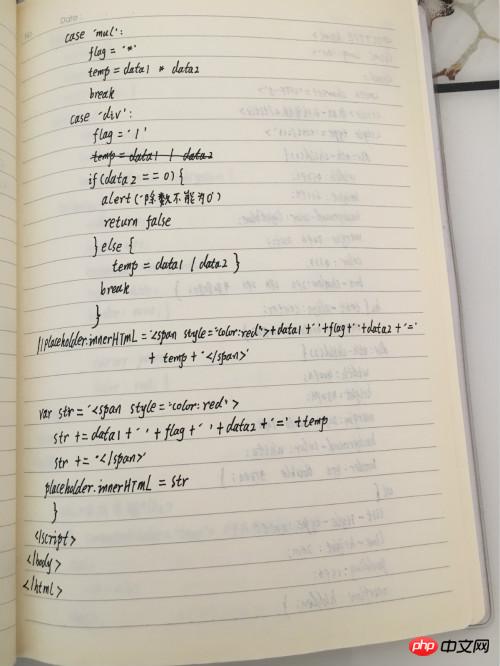 No
Date
case 'mul':
flag = '*'
temp = data1 * data2
break
case 'div':
flag = '/'
temp = data1 / data2
if (data2 == 0) {
alert('除数不能为0')
return false
} else {
temp = data1 / data2 }
break
}
//placeholder.innerHTML = '<span style="color:red">+data1+' '+flag+' '+data2+'='
+ temp + '</span>'
var str = '<span style="color:red">
str += data1 + ' ' + flag + ' ' + data2 + '=' + temp
str += '</span>'
placeholder.innerHTML = str
}
</script>
</body>
</html>
php 中文网